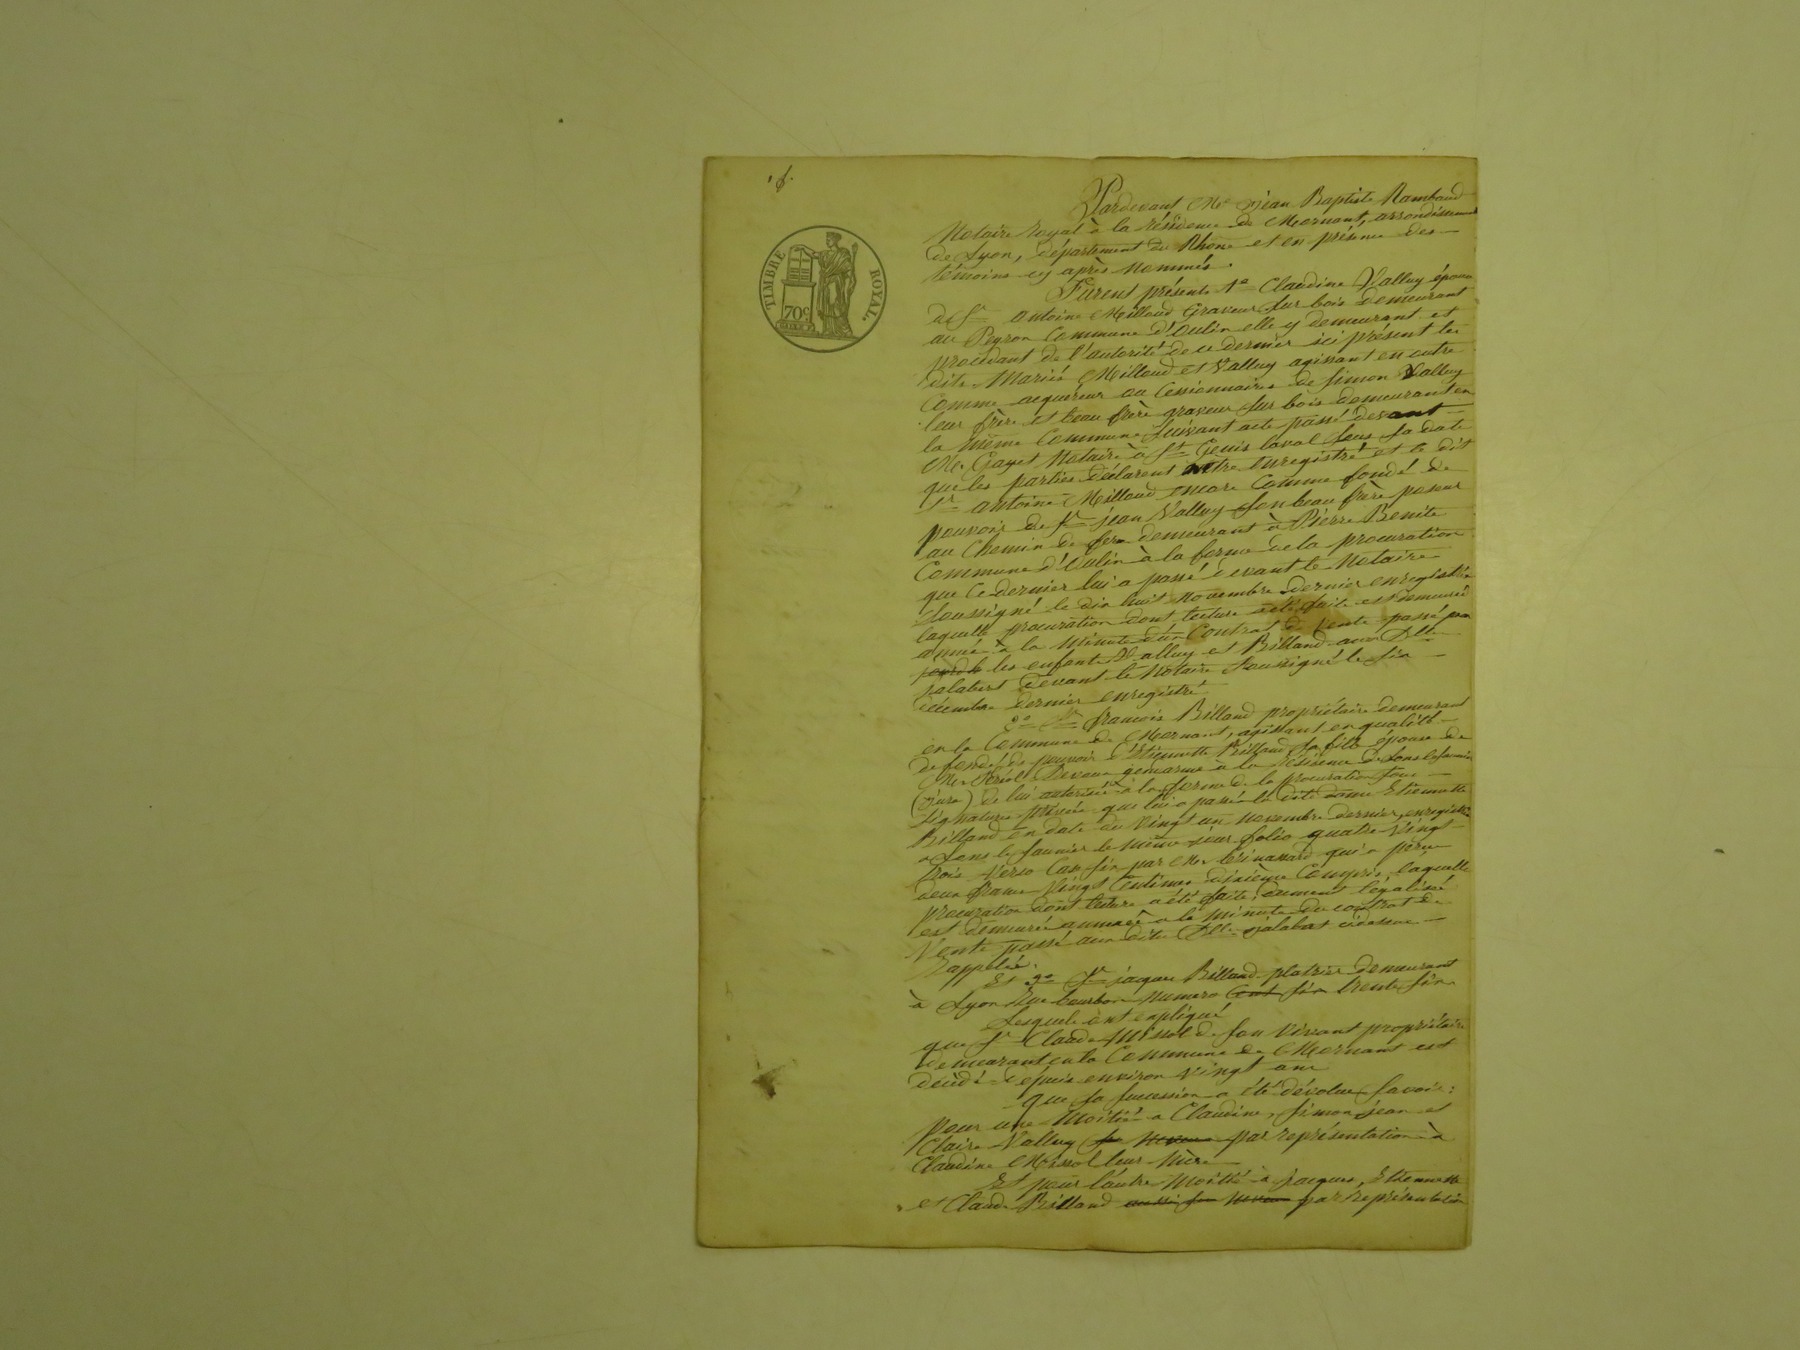 TIMBRE ROYAL.
70c
Pardevant Me jean Baptiste Rambaud
Notaire royal à la résidence de Mornant, arrondissement
de Lyon, département du Rhône et en présence des
témoins cy après nommés.
Furent présents 1o Claudine Valluy épouse
de Sr antoine Millaud Graveur sur bois demeurant
au Peyron Commune d'Oulin elle y demeurant et
procédant de l'autorité de ce dernier ici présent les
dits Mariés Millaud et Valluy agissant en outre
Comme acquéreur ou Cessionnaires de simon Valluy
leur frère et beau frère graveur sur bois demeurant en
la même Commune suivant acte passé devant
Me Gayet Notaire à St Genis laval sous sa date
que les parties déclarent être Enregistré et le dit
Sr antoine Millaud encore Comme fondé de
pouvoir de Sr jean Valluy son beau frère poseur
au Chemin de fer demeurant à Pierre Benite
Commune d'Oulin à la forme de la procuration
que ce dernier lui a passé devant le Notaire
soussigné le dix huit novembre dernier enregistrée
laquelle procuration dont lecture a été faite est demeurée
annéxée à la Minute d'un Contrat de Vente passé par
les enfants Valluy et Billand aux Dlles
jalabert devant le Notaire soussigné le six
décembre dernier enregistré
2o Sr françois Billand propriétaire demeurant
en la Commune de Mornant, agissant en qualité
de fondé de pouvoir d'Etiennette Billand sa fille épouse de
Me gendarme à la résidence de Lons le saunier
(jura) de lui autorisée à la forme de la procuration sous
signature privée que lui a passée la dite dame Etiennette
Billand en date du Vingt un novembre dernier, enregistrée
à Lons le saunier le même jour folio quatre vingt
trois Verso Case six par Me qui a perçu
deux francs Vingt Centimes dixième Compris, laquelle
procuration dont lecture a été faite dument légalisée
est demeurée annexée à la Minute du contrat de
Vente passé aux dites Dlles jalabert cidessus
Rappelé.
Et 3o Sr jaques Billand platrier demeurant
à Lyon Rue bourbon Numéro cent six trente six
Lesquels ont expliqué
que Sr Claude Missol de son Vivant propriétaire
demeurant en la Commune de Mornant est
décédé depuis environ Vingt ans
que sa succession a été dévolue savoir:
pour une Moitié a Claudine, simon jean et
Claire Valluy se neveux par représentation à
Claudine Missol leur Mère
Et pour l'autre Moitié à jacques, Etiennette
et Claude Billand aussi ses neveux par représentation